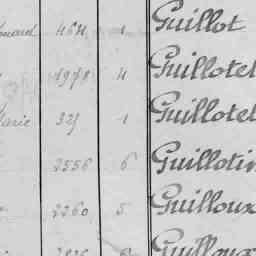 464 1 Guillot
1978 4 Guillotel
Marie 325 1 Guillotel
2556 6 Guillotin
2260 5 Guilloux
Guilloux